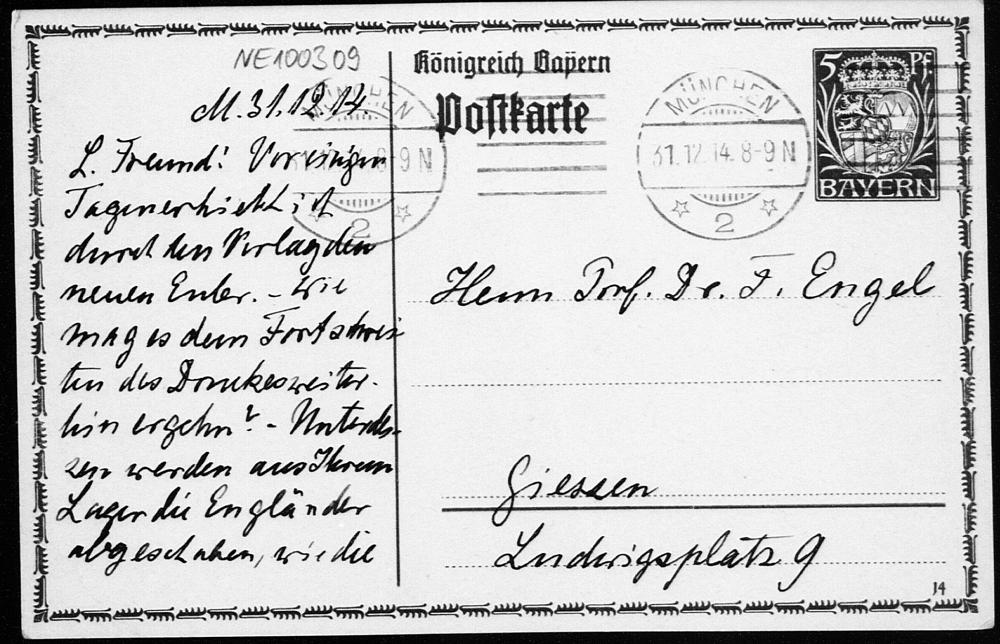 NE100309
Königreich Bayern
Postkarte
MÜNCHEN
31.12.14. 8-9 N
2
MÜNCHEN
31.12.14. 8-9 N
2
5 Pf
BAYERN
M. 31.12.14.
L. Freund! Vor einigen
Tagen erhielt ich
durch den Verlag den
neuen Euler. – Wie
mag es dem Fortschrei-
ten des Druckes weiter-
hin ergehn? – Unterdes-
sen werden aus Ihrem
Lager die Engländer
abgeschoben, wie die
Herrn Prof. Dr. F. Engel
Giessen
Ludwigsplatz 9
14